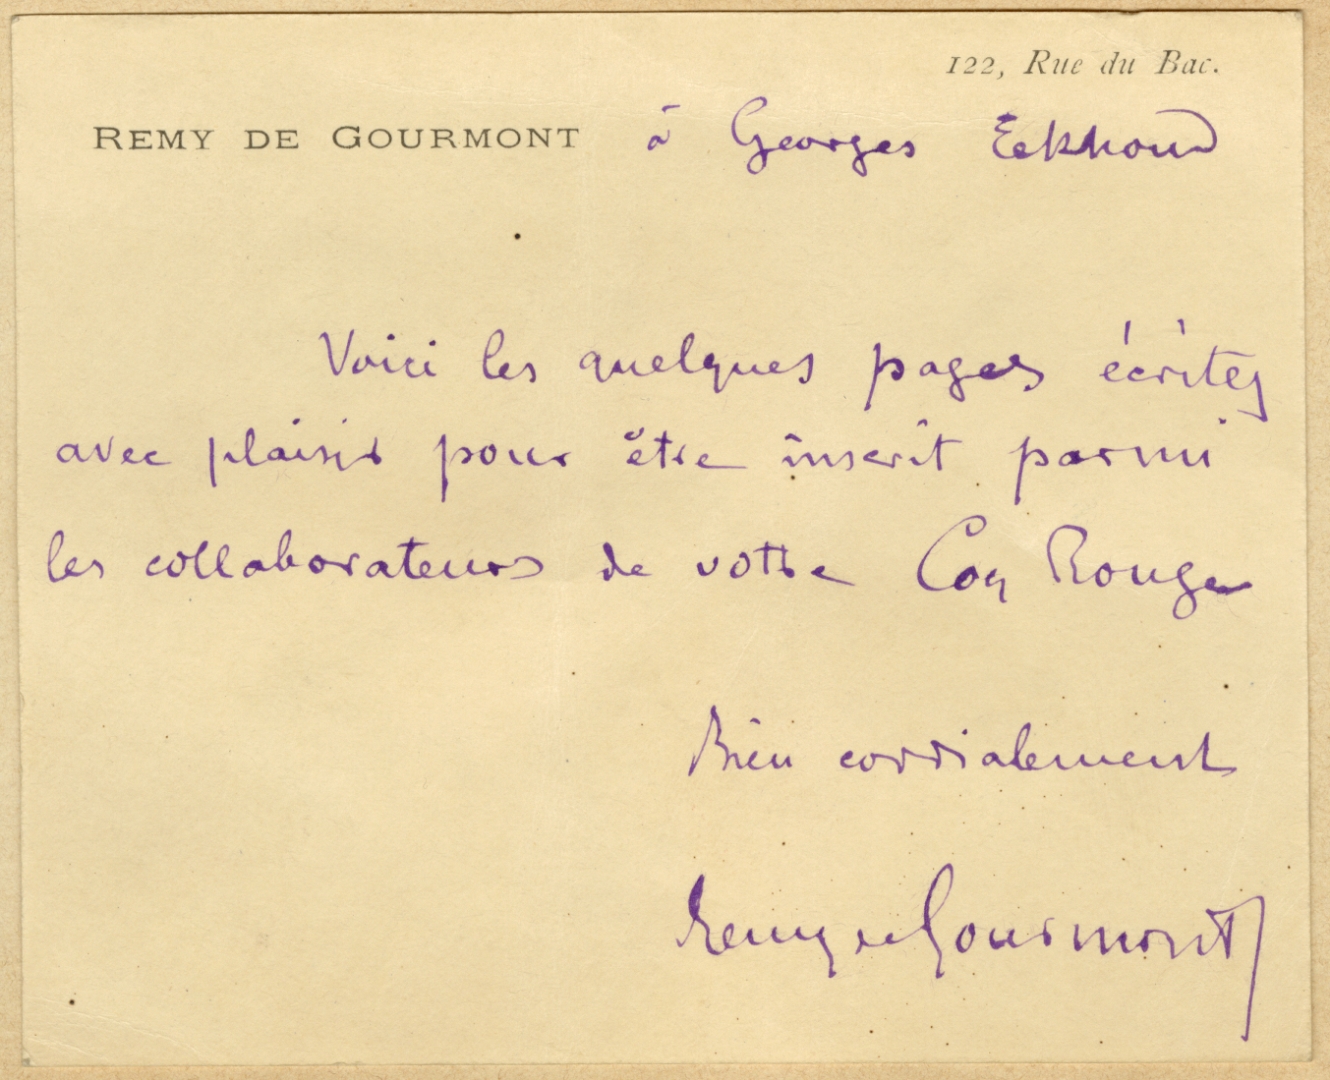 122, Rue du Bac.
REMY DE GOURMONT à Georges Eekhoud
Voici les quelques pages écrites
avec plaisir pour être inscrit parmi
les collaborateurs de votre Coq Rouge
Bien cordialement
Remy de Gourmont